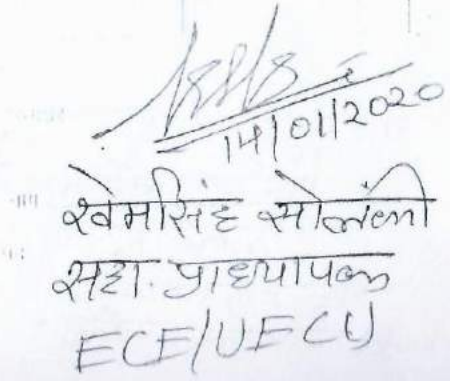 14/01/2020
खेमसिंह सोलंकी
सहा. प्राध्यापक
ECE/UECU